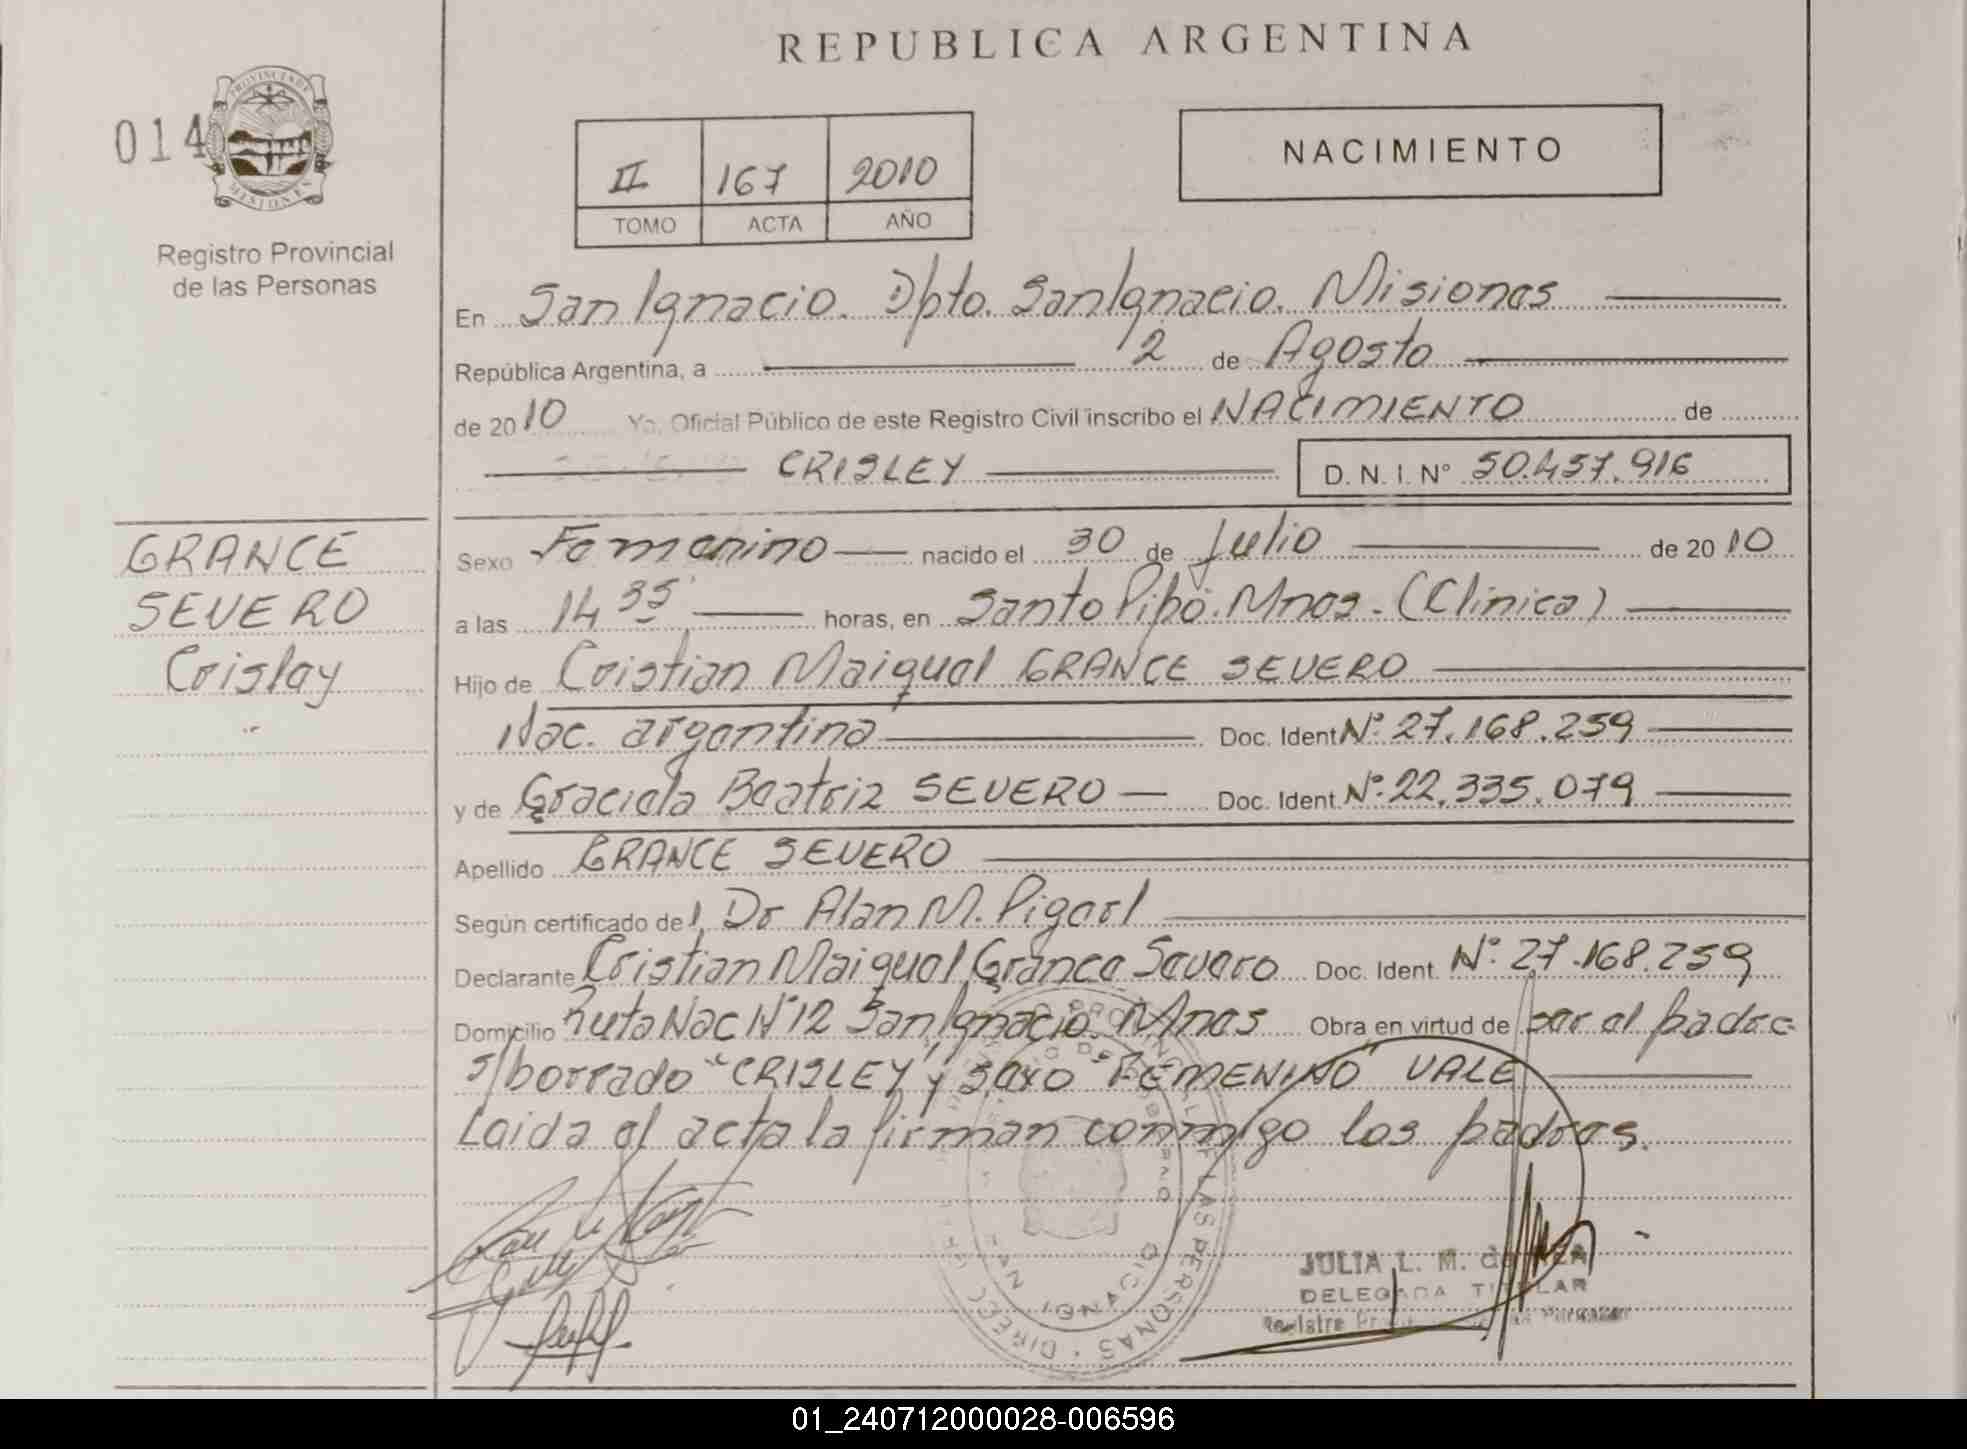 REPUBLICA ARGENTINA
014
PROVINCIA DE
MISIONES
Registro Provincial
de las Personas
II 167 2010
TOMO ACTA AÑO
NACIMIENTO
En San Ignacio. Dpto. San Ignacio. Misiones
República Argentina, a 2 de Agosto
de 2010 Yo, Oficial Público de este Registro Civil inscribo el NACIMIENTO de
CRISLEY D. N. I. N° 50.457.916
GRANCE
SEVERO
Crisley
Sexo Femenino nacido el 30 de Julio de 2010
a las 14 35' horas, en Santo Pipó. Mnes. (Clinica)
Hijo de Cristian Maiquel GRANCE SEVERO
Nac. argentina Doc. Ident N°: 27.168.259
y de Graciela Beatriz SEVERO Doc. Ident N°: 22.335.079
Apellido GRANCE SEVERO
Según certificado del Dr Alan M. Pigerl
Declarante Cristian Maiquel Grance Severo Doc. Ident. N°: 27.168.259
Domicilio Ruta Nac N°12 San Ignacio Mnes Obra en virtud de ser el padre
s/borrado "CRISLEY" y sexo "FEMENINO" VALE
Leida el acta la firman conmigo los padres.
JULIA L. M. de
DELEGADA TITULAR
01_240712000028-006596